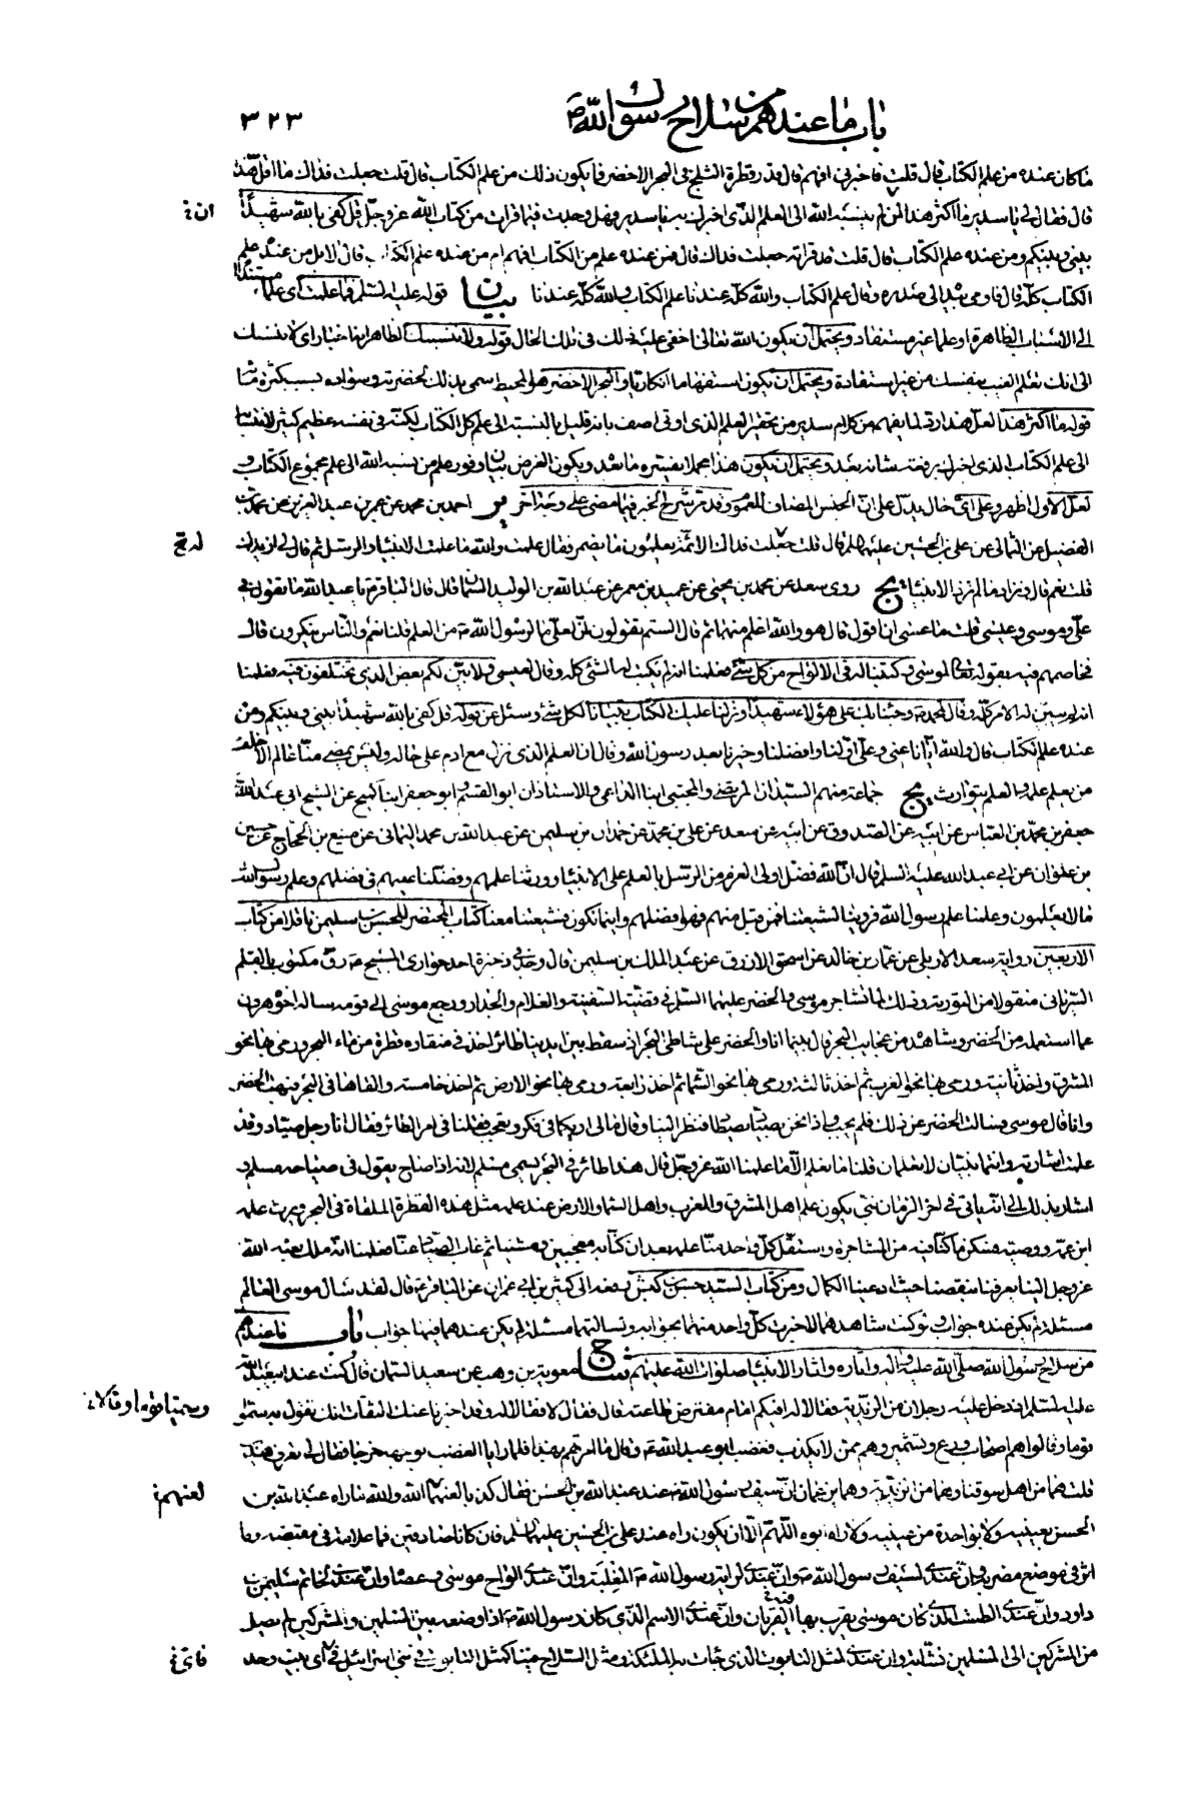 باب ما عندهم من سلاح رسول الله ص ٣٢٣
ما كان عنده من علم الكتاب قال قلت فاخبرني افهم قال قدر قطرة الثلج في البحر الاخضر فما يكون ذلك من علم الكتاب قال قلت جعلت فداك ما اقل هذا
قال فقال لي يا سدير ما اكثر هذا لمن لم ينسبه الله الى العلم الذي اخبرك به يا سدير فهل وجدت فيما قرات من كتاب الله عز وجل قل كفى بالله شهيدا
ان خ
بيني وبينكم ومن عنده علم الكتاب قال قلت قد قراته جعلت فداك قال فمن عنده علم من الكتاب افهم ام من عنده علم الكتاب قال لا بل من عنده علم
الكتاب كله قال فاومى بيده الى صدره وقال علم الكتاب والله كله عندنا علم الكتاب والله كله عندنا بيان قوله عليه السلم فما علمت اى علما مستندا
الى الاسباب الظاهرة او علما غير مستفاد ويحتمل ان يكون الله تعالى اخفى عليه ذلك في تلك الحال قوله ولا ننسبك الظاهر انه اخبار اى لا ننسبك
الى انك تعلم الغيب بنفسك من غير استفادة ويحتمل ان يكون استفهاما انكاريا والبحر الاخضر هو المحيط سمى بذلك لخضرته وسواده بسبب كثرة مائه
قوله ما اكثر هذا لعل هذا رد لما يفهم من كلام سدير من تحقير العلم الذي اوتي اصف بانه قليل بالنسبة الى علم كل الكتاب لكنه في نفسه عظيم كثير لانتسابه
الى علم الكتاب الذي اخبرك برفعة شانه بعد ويحتمل ان يكون هذا مجملا يفسره ما بعد ويكون الغرض بيان وفور علم من نسبه الله الى علم مجموع الكتاب و
لعل الاول اظهر وعلى اى حال يدل على ان الجنس المضاف للعموم وقد مر شرح الخبر فيما مضى على وجه اخر ير احمد بن محمد عن عمر بن عبد العزيز عن محمد بن
الفضيل عن الثمالي عن علي بن الحسين عليهما السلم قال قلت جعلت فداك الائمة يعلمون ما يضمر فقال علمت والله ما علمت الانبياء والرسل ثم قال لي ازيدك
قلت نعم قال ونزاد ما لم تزد الانبياء يج روى سعد عن محمد بن يحيى عن عميد بن معمر عن عبد الله بن الوليد السمان قال قال لنا الباقر ع يا عبد الله ما تقول في
علي وموسى وعيسى قلت ما عسى ان اقول قال هو والله اعلم منهما ثم قال الستم تقولون ان لعلي ما لرسول الله ص من العلم قلنا نعم والناس ينكرون قال
فخاصمهم فيه بقوله تعالى لموسى وكتبنا له في الالواح من كل شيء فعلمنا انه لم يكتب له الشئ كله وقال لعيسى ولابين لكم بعض الذي تختلفون فيه فعلمنا
انه لم يبين له الامر كله وقال لمحمد ص وجئنا بك على هؤلاء شهيدا ونزلنا عليك الكتاب تبيانا لكل شئ وسئل عن قوله قل كفى بالله شهيدا بيني وبينكم ومن
عنده علم الكتاب قال والله ايانا عنى وعلي اولنا وافضلنا وخيرنا بعد رسول الله وقال ان العلم الذي نزل مع ادم على حاله وليس يمضي منا عالم الا خلف
من يعلم علمه والعلم يتوارث يج جماعة منهم السيدان المرتضى والمجتبى ابنا الداعي والاستاذان ابو القسم وابو جعفر ابنا كميح عن الشيخ ابي عبد الله
جعفر بن محمد بن العباس عن ابيه عن الصدوق عن ابيه عن سعد عن علي بن محمد عن حمدان بن سليمن عن عبد الله بن محمد اليماني عن منيع بن الحجاج عن حسين
بن علوان عن ابي عبد الله عليه السلم قال ان الله فضل اولى العزم من الرسل بالعلم على الانبياء وورثنا علمهم وفضلنا عليهم في فضلهم وعلم رسول الله
ما لا يعلمون وعلمنا علم رسول الله فروينا لشيعتنا فمن قبل منهم فهو افضلهم واينما نكون فشيعتنا معنا كتاب المحتضر للحسن بن سليمن ناقلا من كتاب
الاربعين رواية سعد الاربلي عن عمار بن خالد عن اسحق الازرق عن عبد الملك بن سليمن قال وجد في ذخيرة احد حواري المسيح ع رق مكتوب بالقلم
السرياني منقولا من التورية وذلك لما تشاجر موسى والخضر عليهما السلم في قضية السفينة والغلام والجدار ورجع موسى الى قومه ساله اخوه هرون
عما استعلمه من الخضر وشاهده من عجايب البحر قال بينما انا والخضر على شاطئ البحر اذ سقط بين ايدينا طائر اخذ في منقاره قطرة من ماء البحر ورمى بها نحو
المشرق واخذ ثانية ورمى بها نحو المغرب ثم اخذ ثالثة ورمى بها نحو السماء ثم اخذ رابعة ورمى بها نحو الارض ثم اخذ خامسة والقاها في البحر فبهت الخضر
وانا قال موسى فسالت الخضر عن ذلك فلم يجب واذا نحن بصياد يصطاد فنظر الينا وقال ما لي اريكما في فكر وتعجب فقلنا في امر الطائر فقال انا رجل صياد وقد
علمت اشارته وانتما نبيان لا تعلمان قلنا ما نعلم الا ما علمنا الله عز وجل قال هذا طائر في البحر يسمى مسلم لانه اذا صاح يقول في صياحه مسلم و
اشار بذلك الى انه ياتي في اخر الزمان نبي يكون علم اهل المشرق والمغرب واهل السماء والارض عند علمه مثل هذه القطرة الملقاة في البحر ويرث علمه
ابن عمه ووصيه فسكن ما كنا فيه من المشاجرة واستقل كل واحد منا علمه بعد ان كنا به معجبين ومشينا ثم غاب الصياد عنا فعلمنا انه ملك بعثه الله
عز وجل الينا يعرفنا بنقصنا حيث ادعينا الكمال ومن كتاب السيد حسن بن كبش رفعه الى كثير بن ابي عمران عن الباقر ع قال لقد سال موسى العالم
مسئلة لم يكن عنده جواب ولو كنت شاهدهما لاخبرت كل واحد منهما بجوابه ولسالتهما مسئلة لم يكن عندهما فيها جواب باب ما عندهم
من سلاح رسول الله صلى الله عليه واله واثاره واثار الانبياء صلوات الله عليهم شا ج معوية بن وهب عن سعيد السمان قال كنت عند ابي عبد الله
عليه السلم اذ دخل عليه رجلان من الزيدية فقالا له افيكم امام مفترض طاعته قال فقال لا فقالا له وقد اخبرنا عنك الثقات انك تقول به وسموا
قوما وقالوا هم اصحاب ورع وتشمير وهم ممن لا يكذب فغضب ابو عبد الله ع وقال ما امرتهم بهذا فلما رايا الغضب بوجهه خرجا فقال لي تعرف هذين
قلت هما من اهل سوقنا وهما من الزيدية وهما يزعمان ان سيف رسول الله ص عند عبد الله بن الحسن فقال كذبا لعنهما الله والله ما راه عبد الله بن
لعنهم خ
الحسن بعينيه ولا بواحدة من عينيه ولا راه ابوه اللهم الا ان يكون راه عند علي بن الحسين عليهما السلم فان كانا صادقين فما علامة في مقبضه وما
اثر في موضع مضربه وان عندي لسيف رسول الله ص وان عندي لراية رسول الله ص المغلبة وان عندي الواح موسى وعصاه وان عندي لخاتم سليمن بن
داود وان عندي الطست الذي كان موسى يقرب بها القربان وان عندي الاسم الذي كان رسول الله ص اذا وضعه بين المسلمين والمشركين لم يصل
من المشركين الى المسلمين نشابة وان عندي لمثل التابوت الذي جاءت به الملئكة ومثل السلاح فينا كمثل التابوت في بني اسرائيل في اى بيت وجد